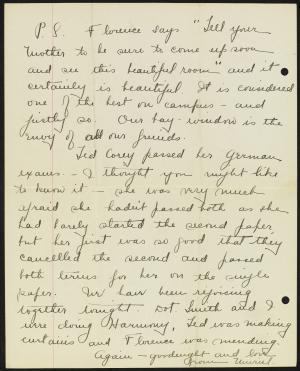 P. S. Florence says "Tell your
mother to be sure to come up soon
and see this beautiful room" and it
certainly is beautiful. It is considered
one of the best on campus - and
justly so. Our bay-window is the
envy of all our friends.
Ted Corey passed her German
exams. - I thought you might like
to know it - she was very much
afraid she hadn't passed both as she
had barely started the second paper,
but her first was so good that they
cancelled the second and passed
both terms for her on the single
paper. We have been rejoicing
together tonight. Dot Smith and I
were doing Harmony, Ted was making
curtains and Florence was mending.
Again - goodnight and love
from Muriel.